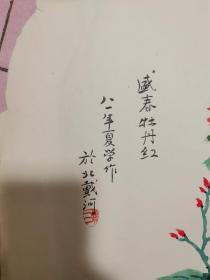 盛春牡丹红
八一年夏学作
於北戴河